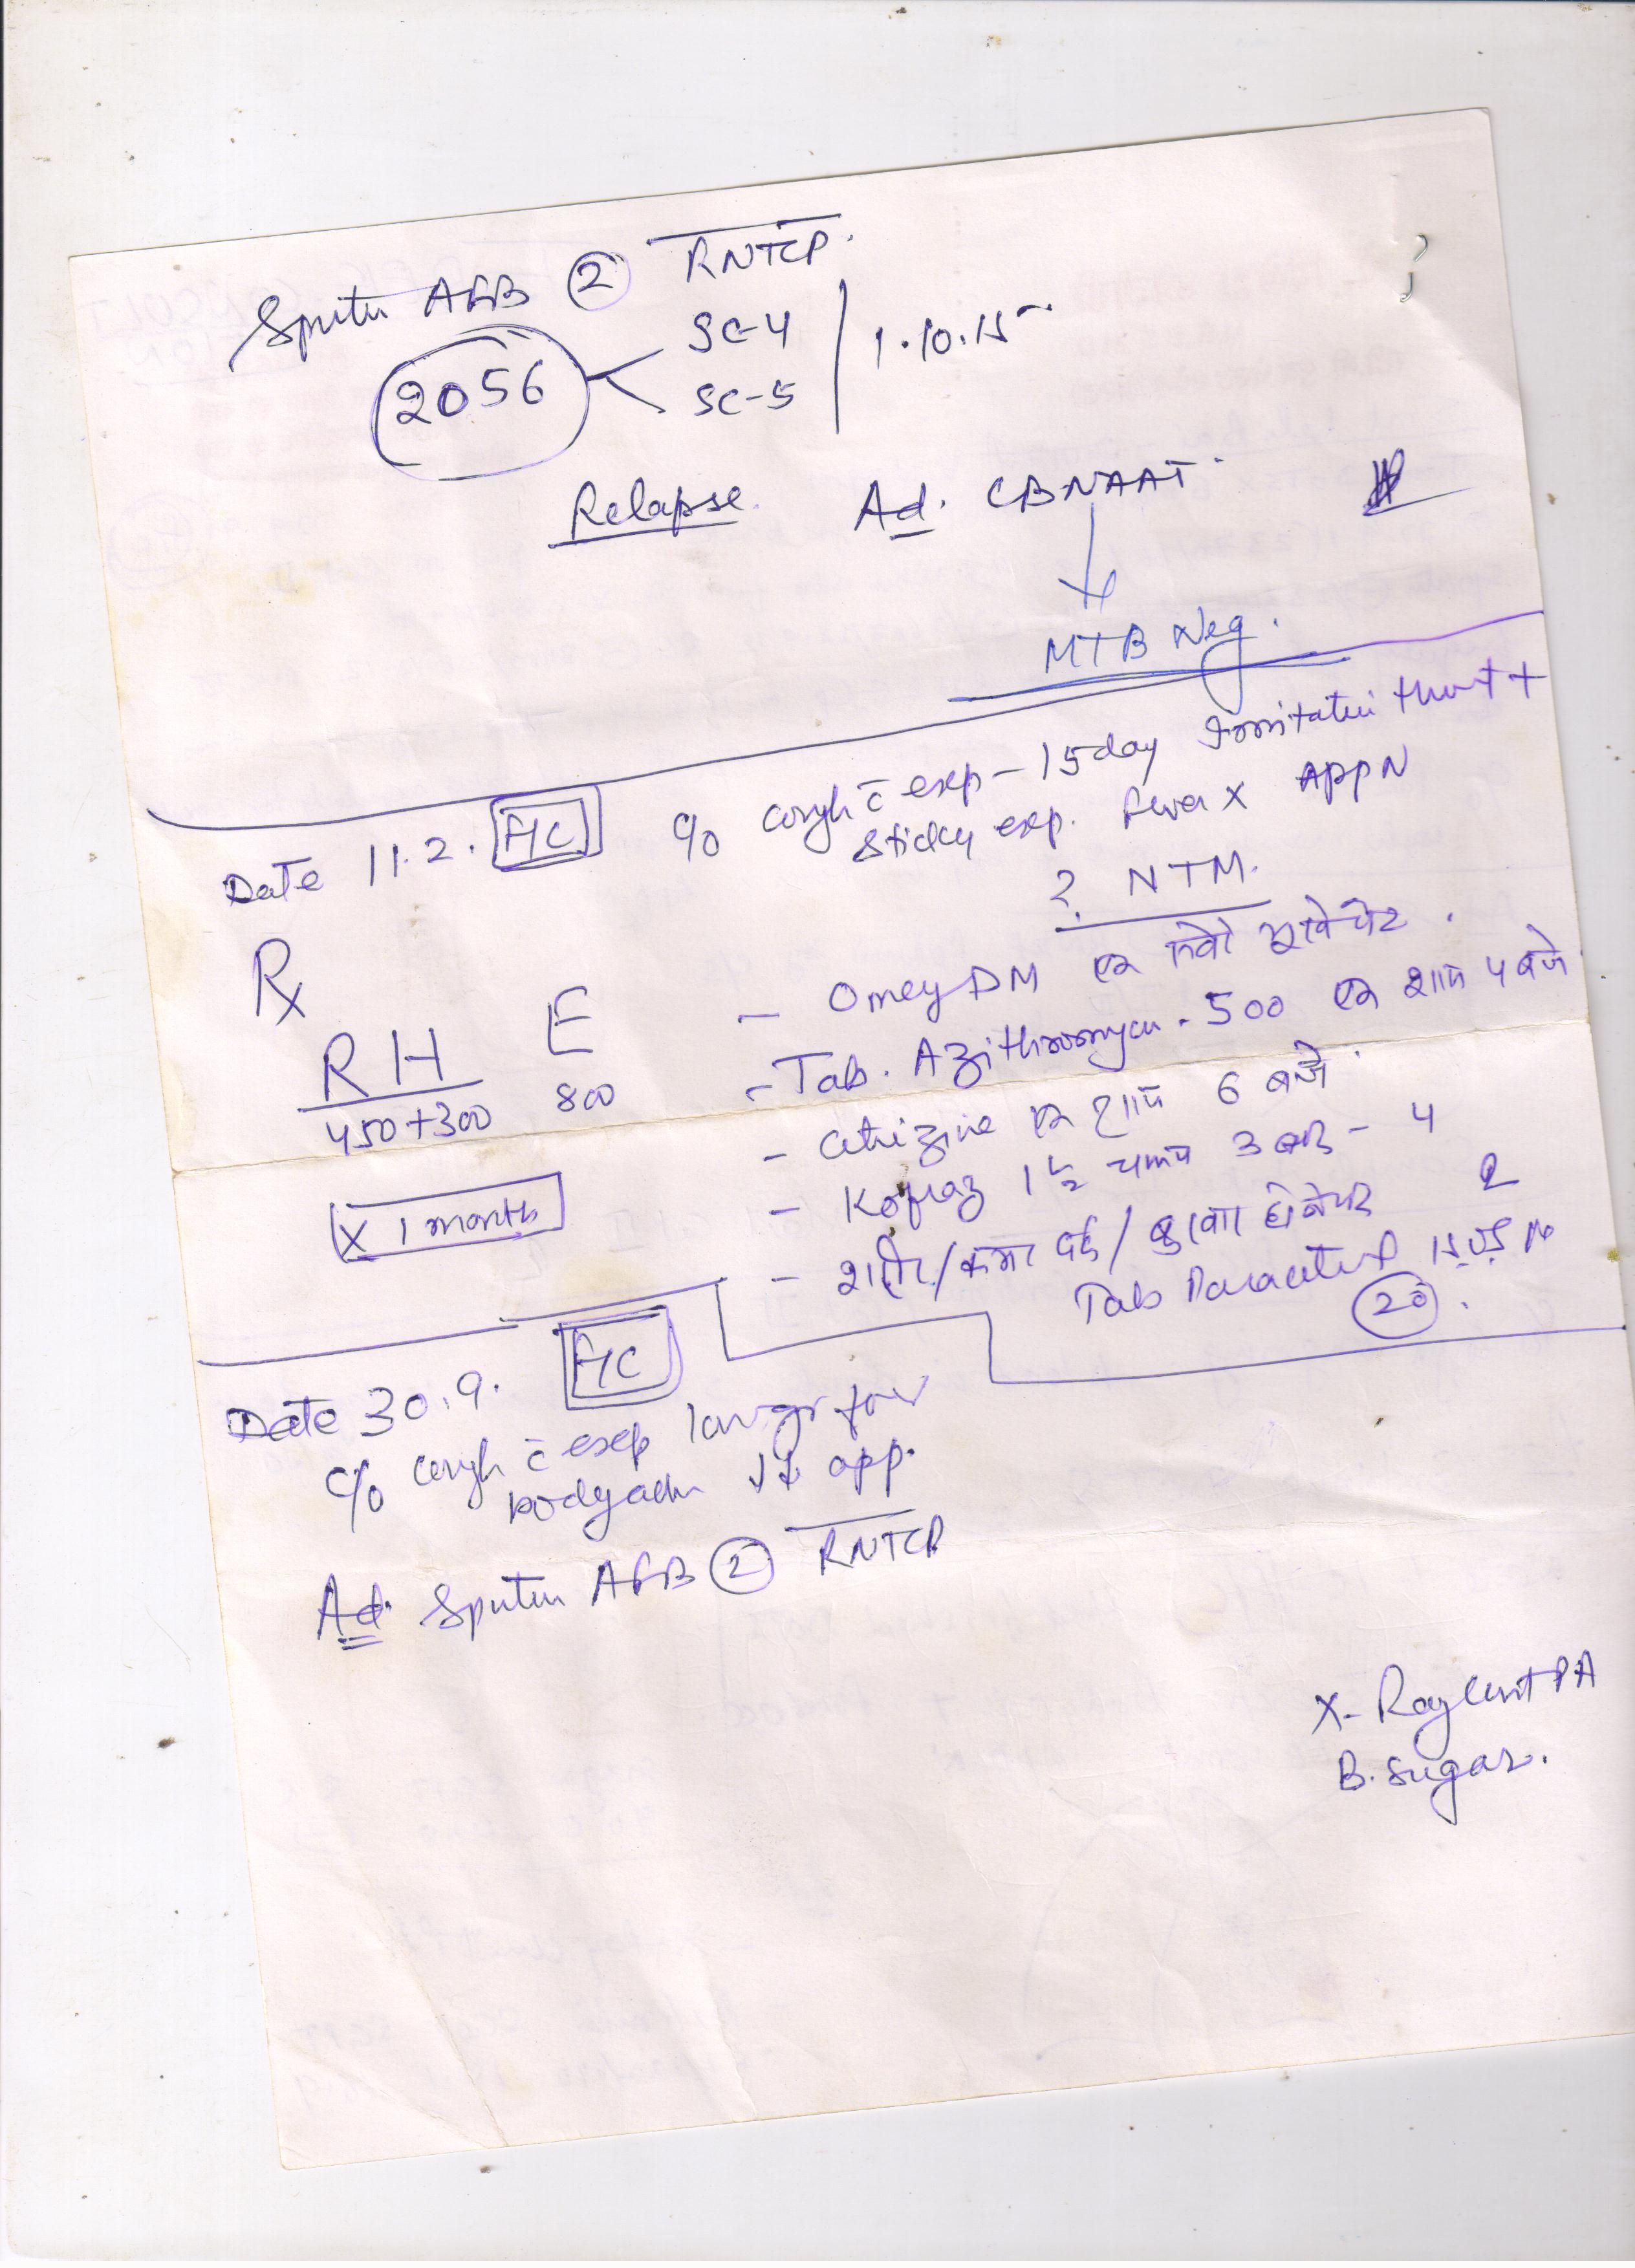 Sputm AFB ② RNTCP.
2056 SC-4
SC-5 1.10.15
Relapse. Ad. CBNAAT
MTB Neg.
Date 11.2. F/C c/o cough c̄ exp - 15 day Irritation throat +
sticky exp. Fever x APPN
? NTM.
Rx
- Omez DM एक
RH E - Tab. Azithromycin - 500 एक शाम 4 बजे
450+300 800 - Cetrizine एक शाम 6 बजे
- Kofraz 1½ चम्मच 3 बार - 4
x 1 month - शरीर/कमर दर्द/बुखार होने पर 2
Tab Paracetml
20.
Date 30.9. F/C
c/o cough c̄ exp
bodyache ↓↓ app.
Ad. Sputm AFB ② RNTCP
X-Ray Chest PA
B. Sugar.